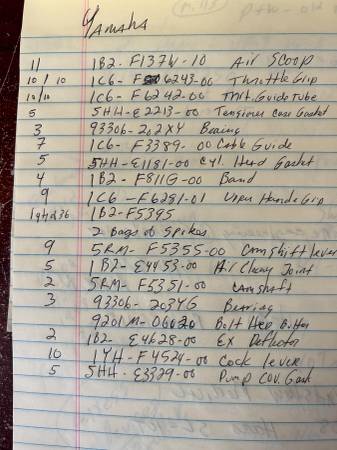 Yamaha
11 1B2-F137U-10 Air Scoop
10/10 1C6-F6243-00 Throttle Grip
10/10 1C6-F6242-00 Thrt. Guide Tube
5 5HH-E2213-00 Tensioner Case Gasket
3 93306-202XY Bearing
7 1C6-F3389-00 Cable Guide
5 5HH-E1181-00 Cyl. Head Gasket
4 1B2-F811G-00 Band
9 1C6-F6281-01 Grip
1B2-F5395
2 Bags of Spikes
9 5RM-F5355-00 Camshift lever
5 1B2-E4453-00 Air Joint
2 5RM-F5351-00 Camshaft
3 93306-203YG Bearing
9201M-06020 Bolt Hep B.Hea
2 1B2-E4628-00 Ex Deflector
10 1YH-F4524-00 Cock lever
5 5HH-E3329-00 Pump Cov. Gask